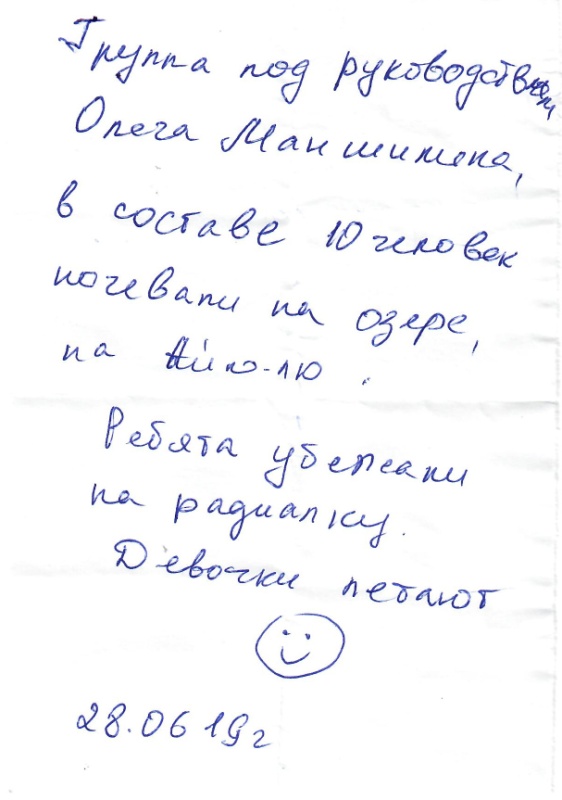 Группа под руководством
Олега Маншилина,
в составе 10 человек
ночевали на озере,
на Айю-лю.
Ребята убежали
на радиалку.
Девочки летают
28.06 19г